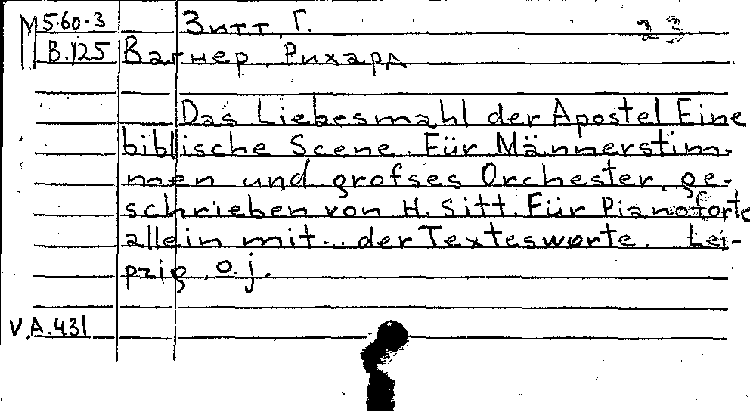 М 5.60-3 Зитт, Г. 23
В.125 Вагнер, Рихард
Das Liebesmahl der Apostel Eine
biblische Scene. Für Männerstim-
men und grofses Orchester, ge-
schrieben von H. Sitt. Für Pianoforte
allein mit... der Textesworte. Lei-
pzig, o.j.
V.A.431